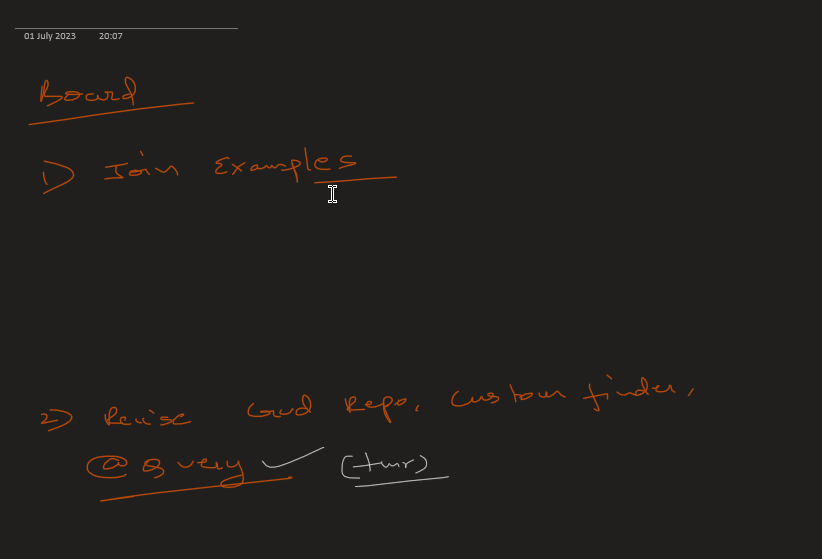 01 July 2023 20:07
Board
1) Join Examples
2) Revise Crud Repo, custom finder,
@Query (tmr)